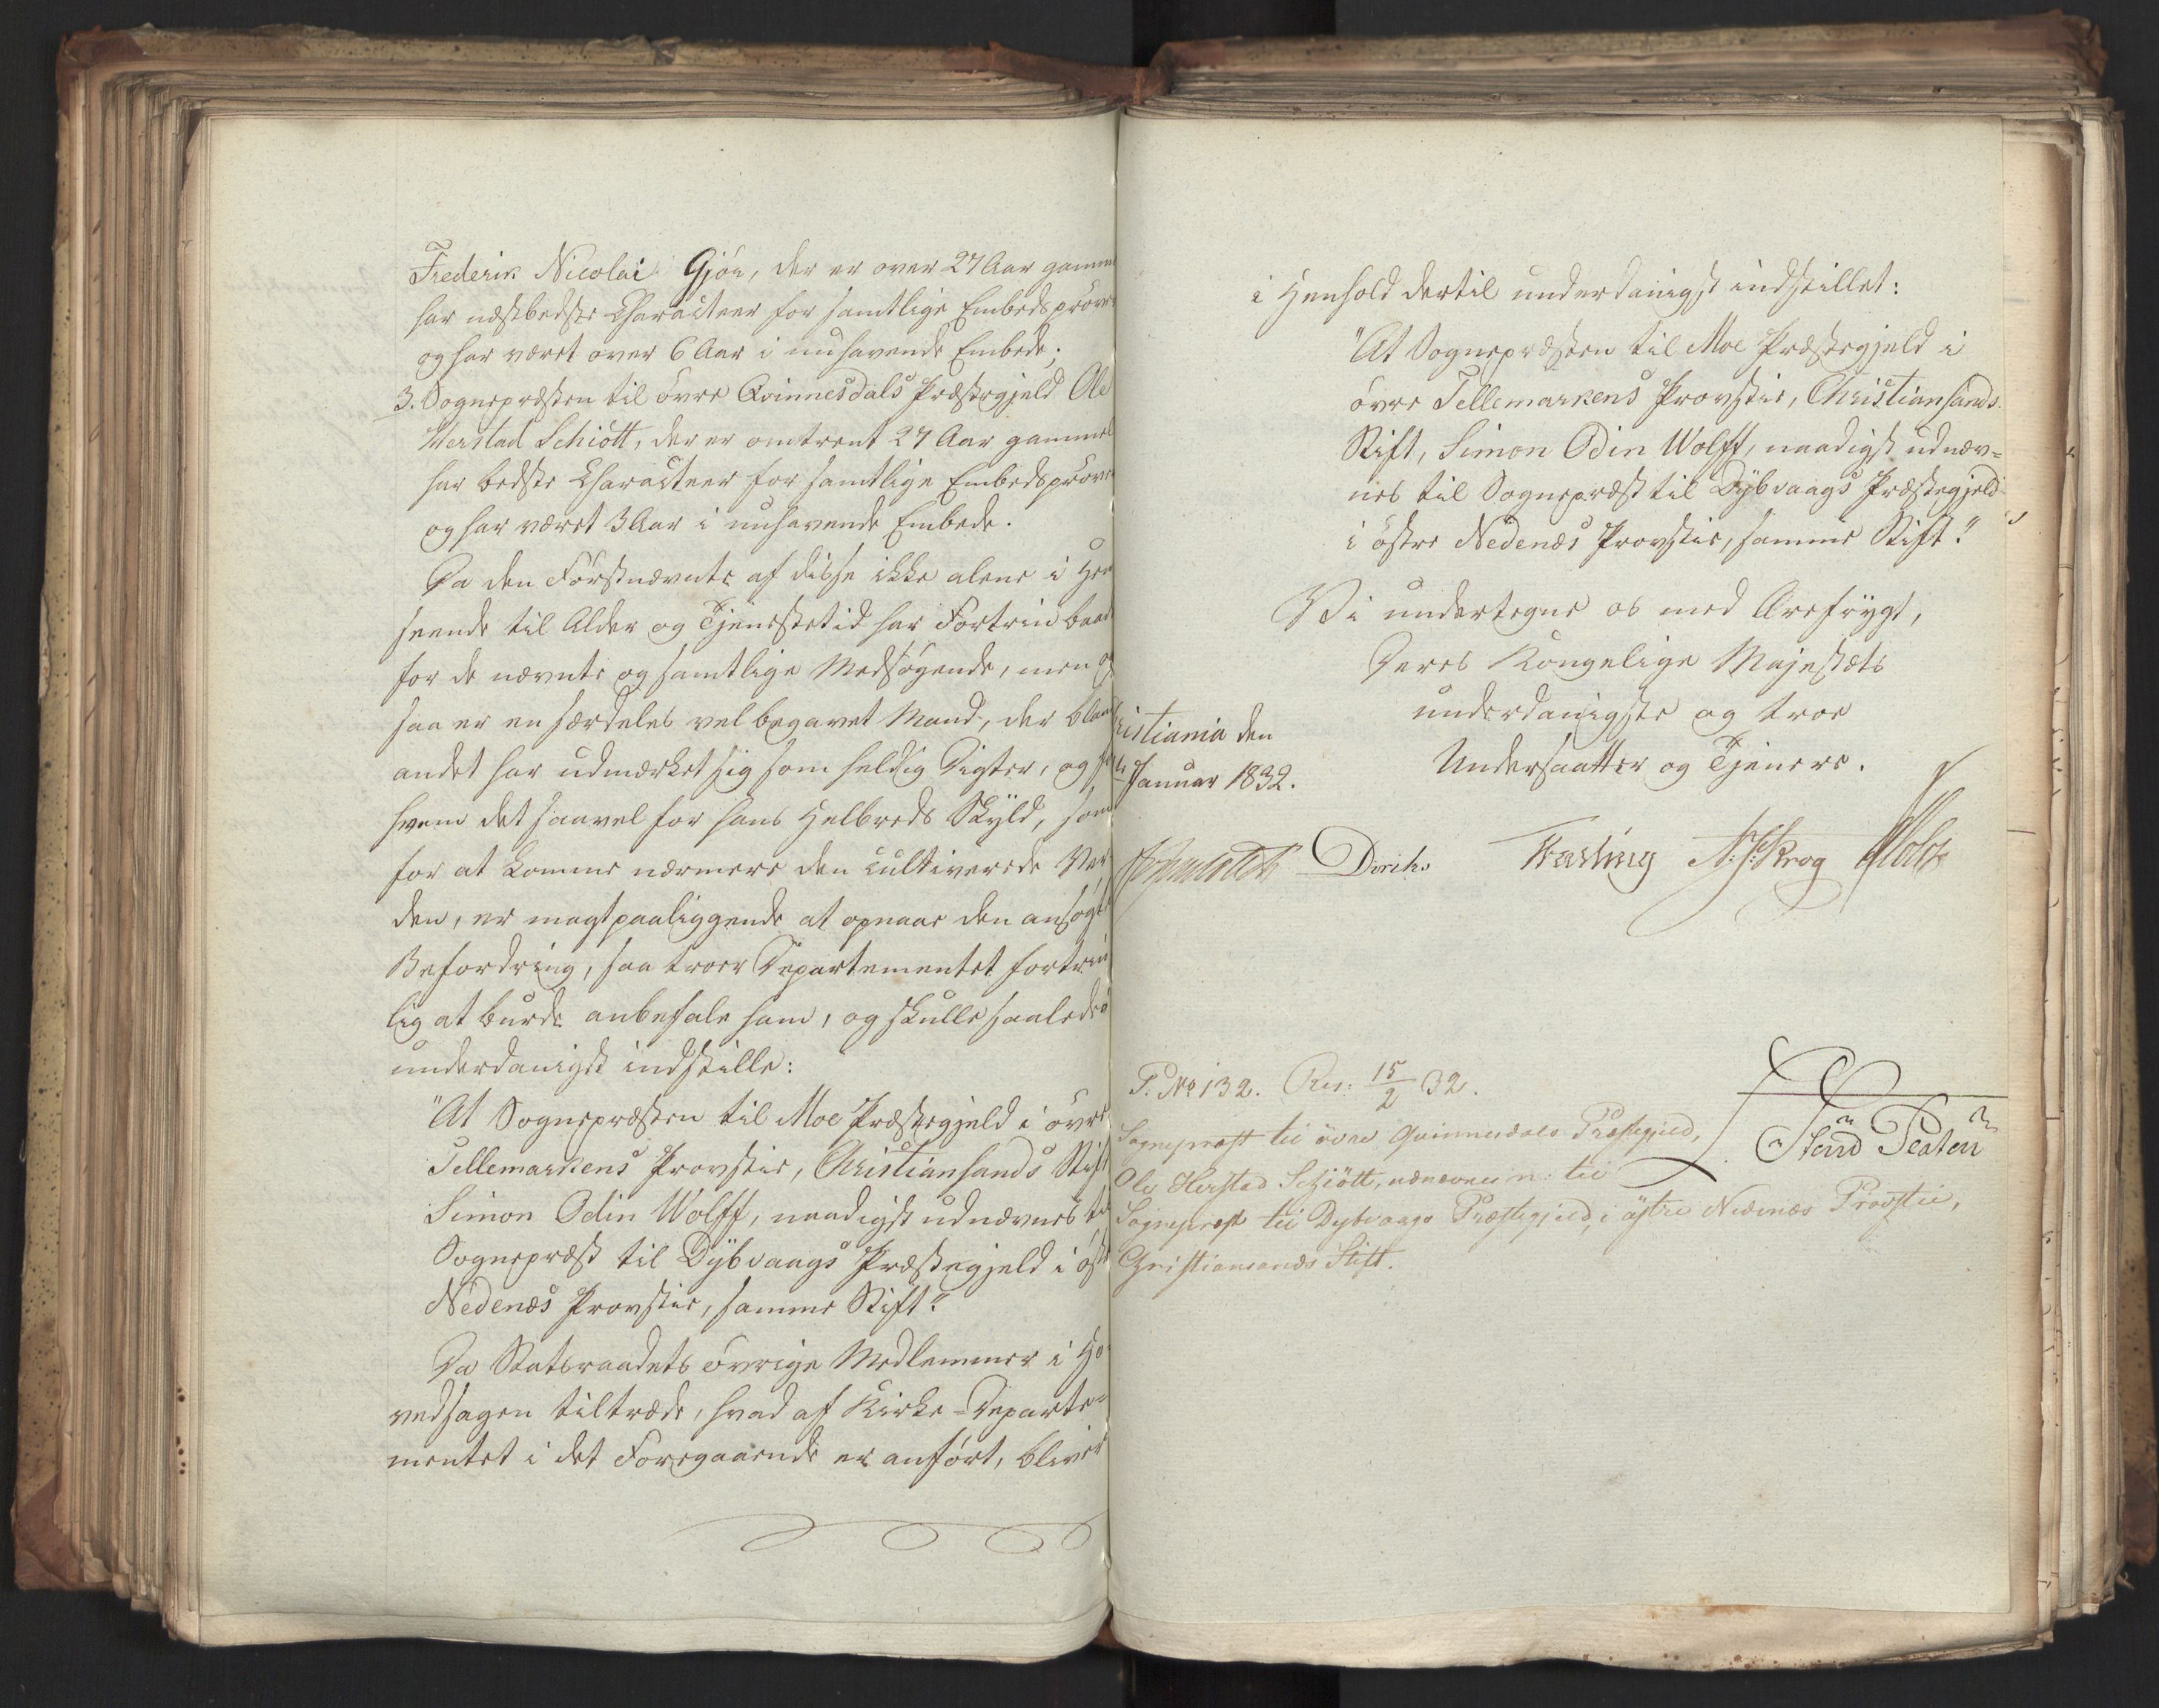 Frederik Nicolai Gjör, der er over 27 Aar gamme
har næstbedste Characteer for samtlige Embedsprøve
og har været over 6 Aar i nuhavende Embede;
3. Sognepræsten til övre Qvinnesdals Præstegjeld Ole
Herstad Schiött, der er omtrent 27 Aar gammel
har bedste Characteer for samtlige Embedsprøve
og har været 3 Aar i nuhavende Embede.
Da den Førstnævnte af disse ikke alene i Hen
seende til Alder og Tjenestetid har Fortrin baad
for de nævnte og samtlige Medsøgende, men og
saa er en særdeles vel begavet Mand, der bland
andet har udmærket sig som heldig Digter, og for
hvem det saavel for hans Helbreds Skyld, som
for at komme nærmere den cultiverede Ver
den, er magtpaaliggende at opnaae den ansøgte
Befordring, saa troer Departementet fortrin
lig at burde anbefale ham, og skulle saaledes
underdanigst indstille:
"At Sognepræsten til Moe Præstegjeld i övre
Tellemarkens Provstie, Christiansands Stift
Simon Odin Wolff, naadigst udnævnes til
Sognepræst til Dÿbvaags Præstegjeld i øst
Nedenæs Provstie, samme Stift."
Da Statsraadets övrige Medlemmer i Ho
vedsagen tiltræde, hvad af Kirke-Departe-
mentet i det Foregaaende er anført, bliver
i Henhold dertil underdanigst indstillet:
"At Sognepræsten til Moe Præstegjeld i
övre Tellemarkens Provstie, Christiansands
Stift, Simon Odin Wolff, naadigst udnæv-
nes til Sognepræst til Dÿbvaags Præstegjeld
i östre Nedenæs Provstie, samme Stift."
Vi undertegne os med Ærefrÿgt,
Deres Kongelige Majestæts
underdanigste og troe
Undersaatter og Tjenere.
ristiania den
Januar 1832.
Diriks Fasting N. J. Krog Holst
P. No 132. Res: 15/2 32.
Sognepræst til övre Qvinnesdals Præstegjeld,
Ole Herstad Schiött, udnævnes n: til
Sognepræst til Dybvaags Præstegjeld, i østre Nedenæs Provstie,
Christiansands Stift.